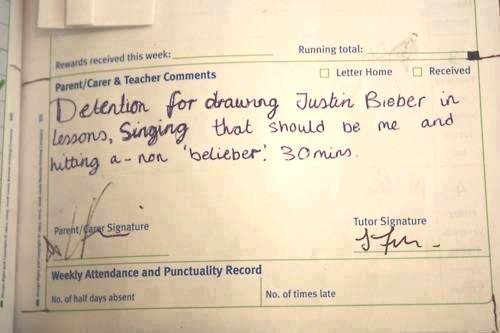 Rewards received this week:
Running total:
Parent/Carer & Teacher Comments
Letter Home
Received
Detention for drawing Justin Bieber in
lessons, Singing that should be me and
hitting a-non 'belieber'. 30mins.
Parent/Carer Signature
Tutor Signature
Weekly Attendance and Punctuality Record
No. of half days absent
No. of times late